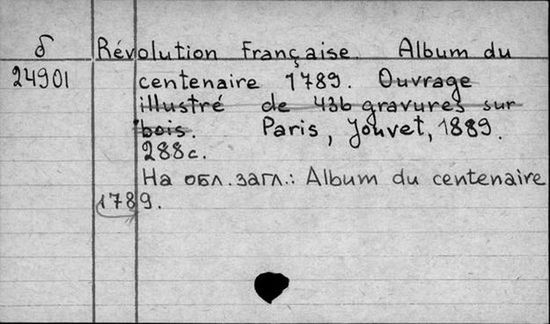 δ Révolution Française. Album du
24901 centenaire 1789. Ouvrage
illustré de 436 gravures sur
bois. Paris, Jouvet, 1889.
288с.
На обл. загл.: Album du centenaire
1789.